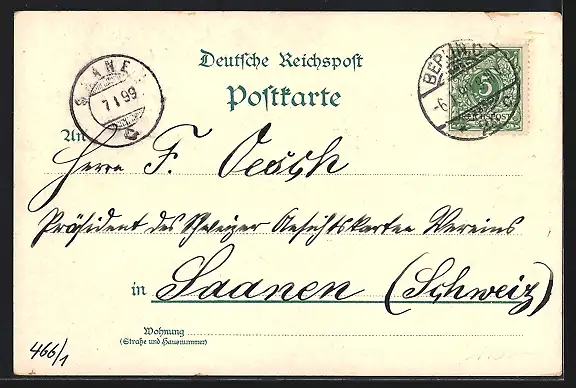 Deutsche Reichspost
Postkarte
SAANEN
7 I 99
BERLIN
5
REICHSPOST
An
Herrn F. Oesch
Präsident des Schweizer Ansichtskarten Vereins
in Saanen (Schweiz)
Wohnung
(Straße und Hausnummer)
466/1